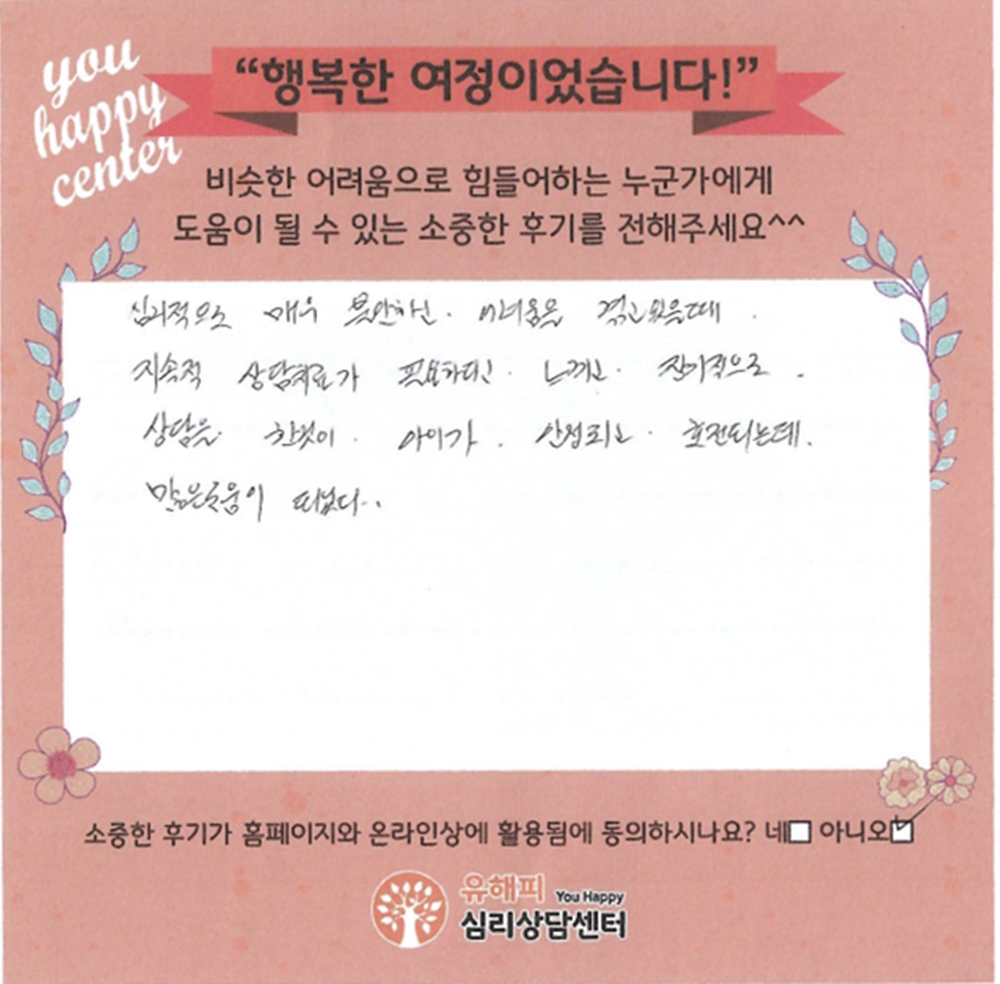 you
happy
center
“행복한 여정이었습니다!”
비슷한 어려움으로 힘들어하는 누군가에게
도움이 될 수 있는 소중한 후기를 전해주세요^^
심리적으로 매우 불안하신. 어려움을 겪고있을때.
지속적 상담치료가 필요하다고. 느끼고. 장기적으로.
상담을. 한것이. 아이가. 안정되고. 호전되는데.
많은도움이 되었다..
소중한 후기가 홈페이지와 온라인상에 활용됨에 동의하시나요? 네 아니오
유해피 You Happy
심리상담센터